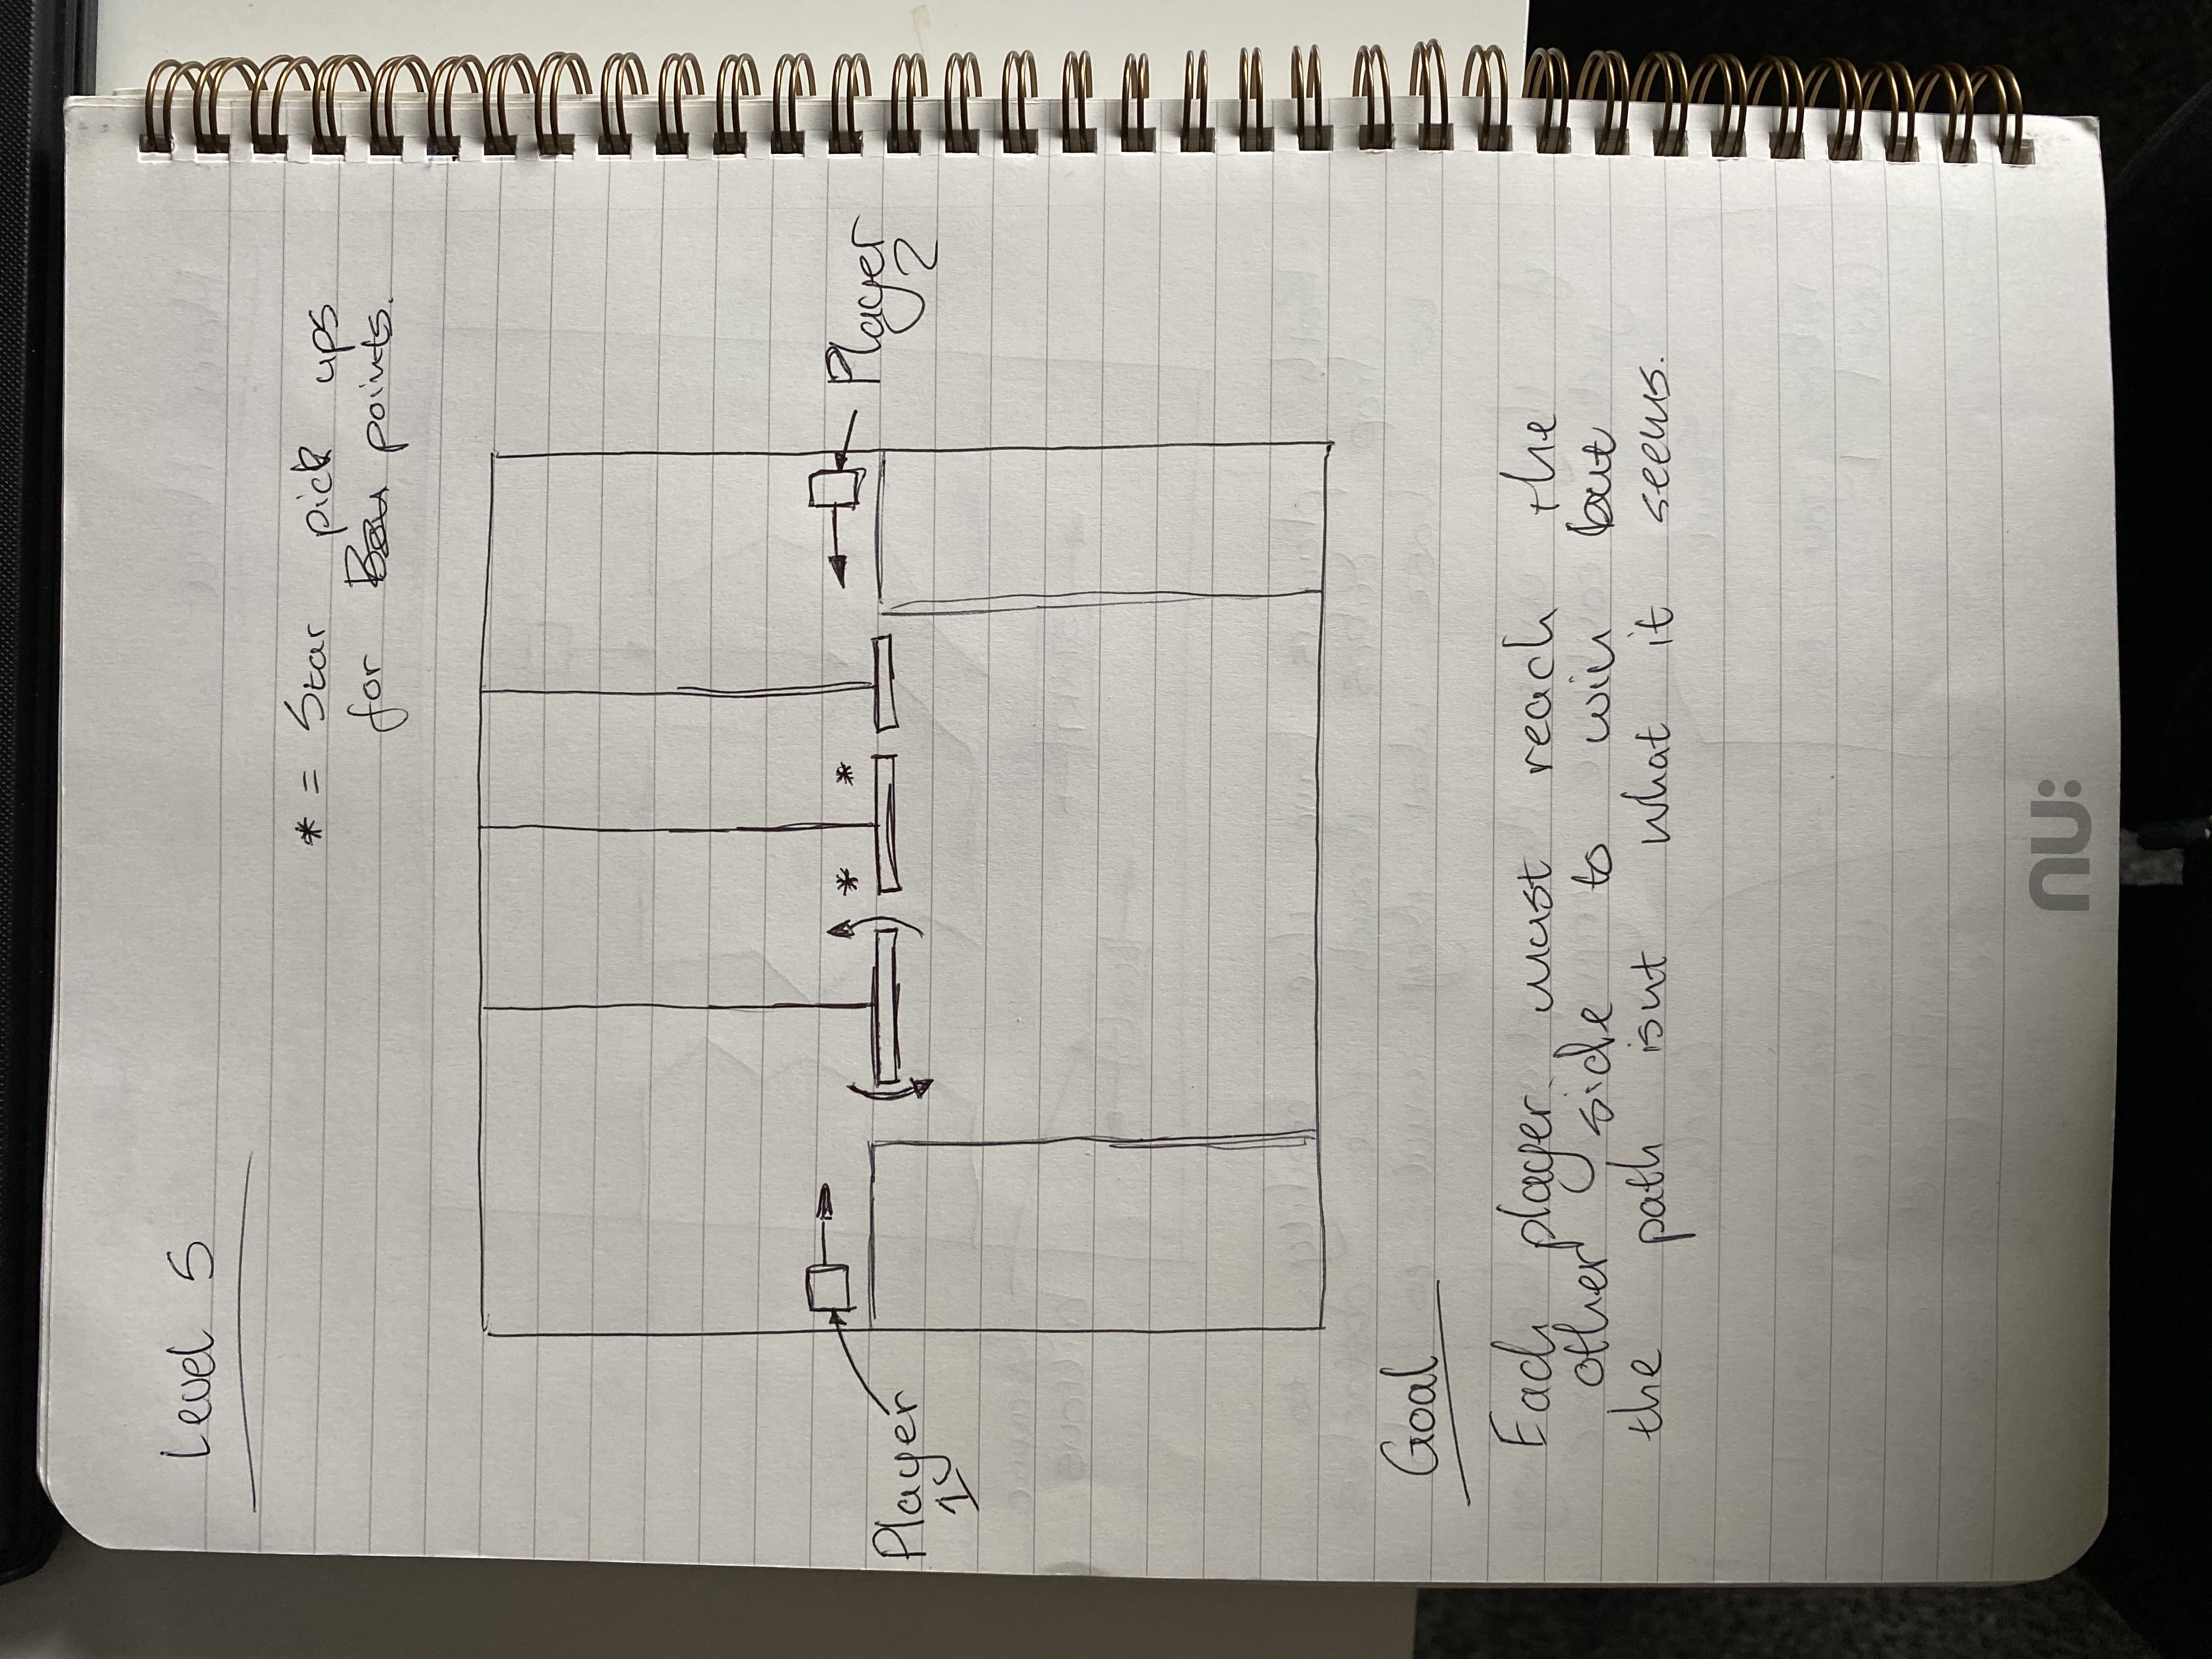 Level 5
* = Star pick ups
for points.
Player
1
Player
2
* *
Goal
Each player must reach the
other side to win but
the path isnt what it seems.
nu: